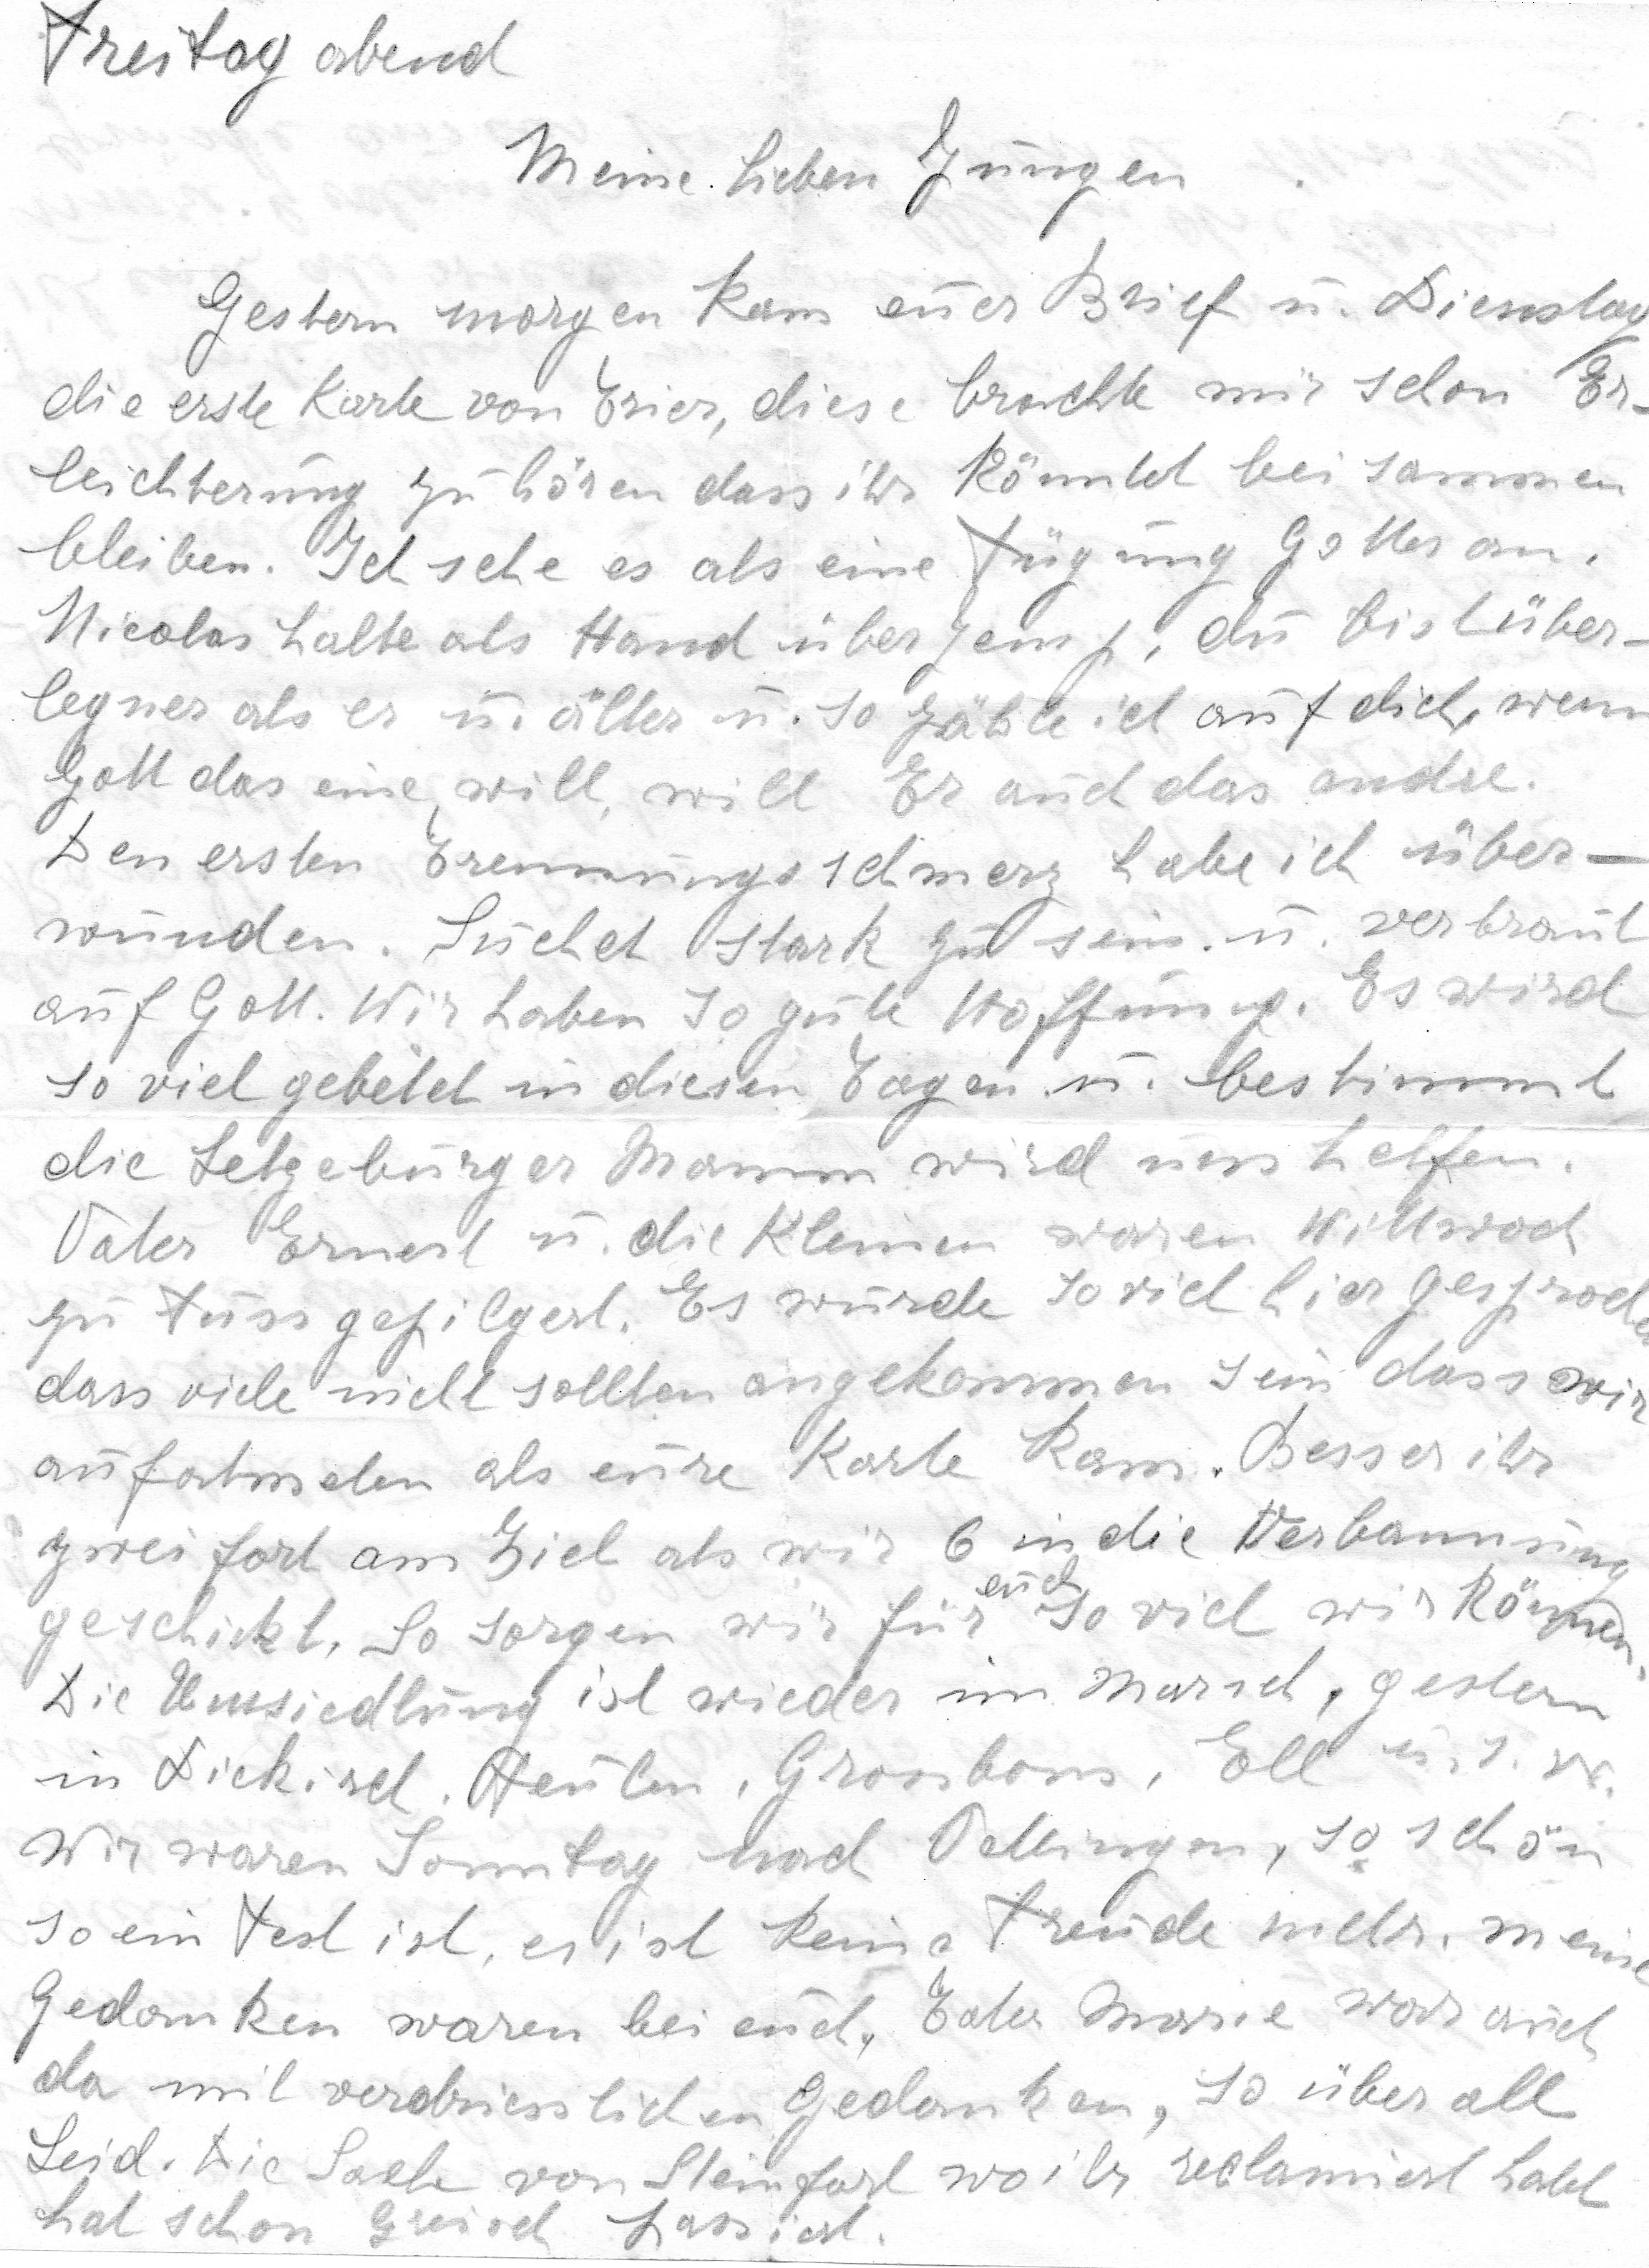 Freitag abend
Meine lieben Jungen
Gestern morgen kam euer Brief u. Dienstag
die erste Karte von Trier, diese brachte mir schon Er-
leichterung zu hören dass ihr könntet beisammen
bleiben. Ich sehe es als eine Fügung Gottes an.
Nicolas halte als Hand über Jemp, du bist über-
legner als er u. älter u. so zähle ich auf dich, wenn
Gott das eine will, will Er auch das andre.
Den ersten Trennungsschmerz habe ich über-
wunden. Suchet stark zu sein u. vertraut
auf Gott. Wir haben so gute Hoffnung. Es wird
so viel gebetet in diesen Tagen u. bestimmt
die Letzeburger Mamm wird uns helfen.
Vater Ernest u. die Kleinen waren Mittwoch
zu Fuss gepilgert. Es wurde so viel hier gesprochen
dass viele nicht sollten angekommen sein dass wir
aufatmeten als eure Karte kam. Besser ihr
zwei fort am Ziel als wir 6 in die Verbannung
geschickt. So sorgen wir für euch so viel wir können.
Die Umsiedlung ist wieder im Marsch, gestern
in Diekirch. Heute, Grosbous, Ell u. s. w.
Wir waren Sonntag nach Oettingen, so schön
so ein Fest ist, es ist keine Freude mehr. Meine
Gedanken waren bei euch, Marie war auch
da mit verdriesslichen Gedanken, so überall
Leid. Die Sache von Steinfort wo ihr reclamiert habt
hat schon Greisch kassiert.